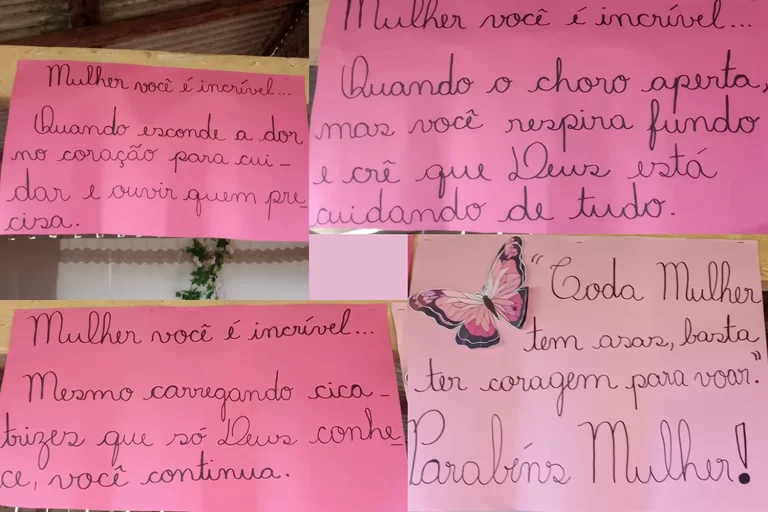 Mulher você é incrível...
Quando esconde a dor
no coração para cui-
dar e ouvir quem pre_
cisa.
Mulher você é incrível...
Quando o choro aperta,
mas você respira fundo
e crê que Deus está
cuidando de tudo.
Mulher você é incrível...
Mesmo carregando cica-
trizes que só Deus conhe_
ce, você continua.
"Toda Mulher
tem asas, basta
ter coragem para voar."
Parabéns Mulher!